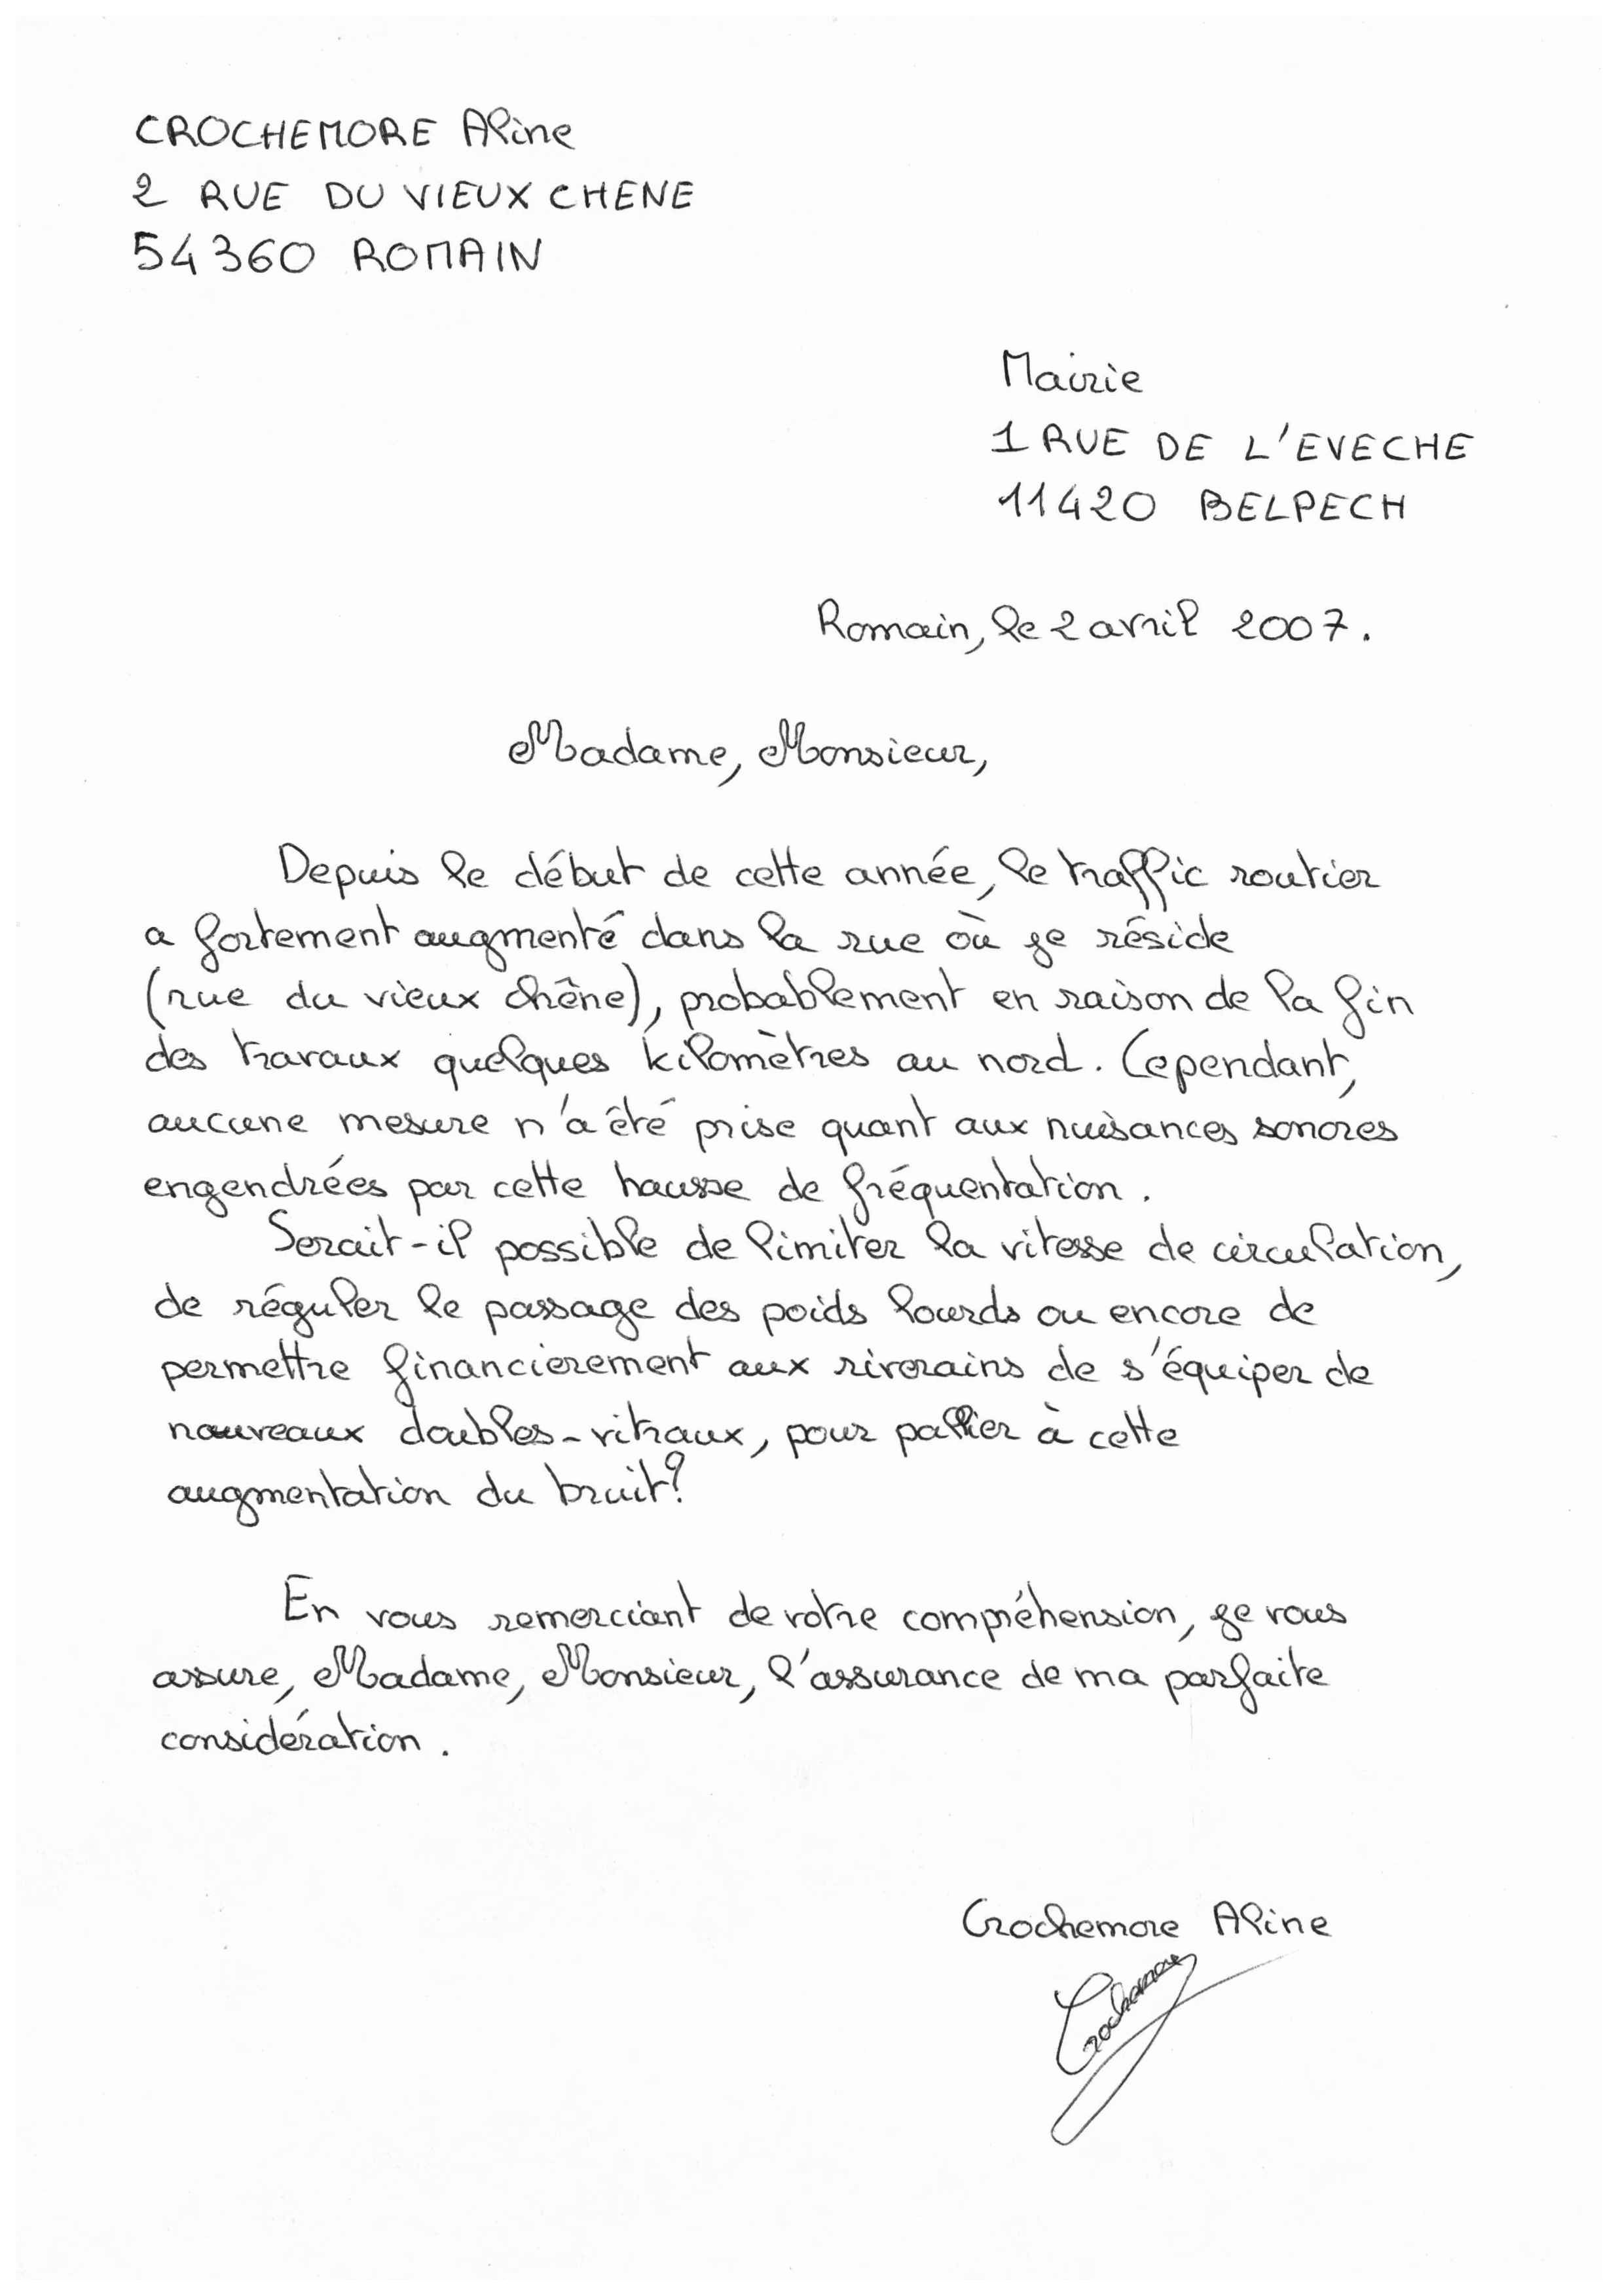 CROCHEMORE Aline
2 RUE DU VIEUX CHENE
54360 ROMAIN
Mairie
1 RUE DE L'EVECHE
11420 BELPECH
Romain, le 2 avril 2007.
Madame, Monsieur,
Depuis le début de cette année, le traffic routier
a fortement augmenté dans la rue où je réside
(rue du vieux chêne), probablement en raison de la fin
des travaux quelques kilomètres au nord. Cependant,
aucune mesure n'a été prise quant aux nuisances sonores
engendrées par cette hausse de fréquentation.
Serait-il possible de limiter la vitesse de circulation,
de réguler le passage des poids lourds ou encore de
permettre financierement aux riverains de s'équiper de
nouveaux doubles-vitraux, pour pallier à cette
augmentation du bruit?
En vous remerciant de votre compréhension, je vous
assure, Madame, Monsieur, l'assurance de ma parfaite
considération.
Crochemore Aline
Crochemore